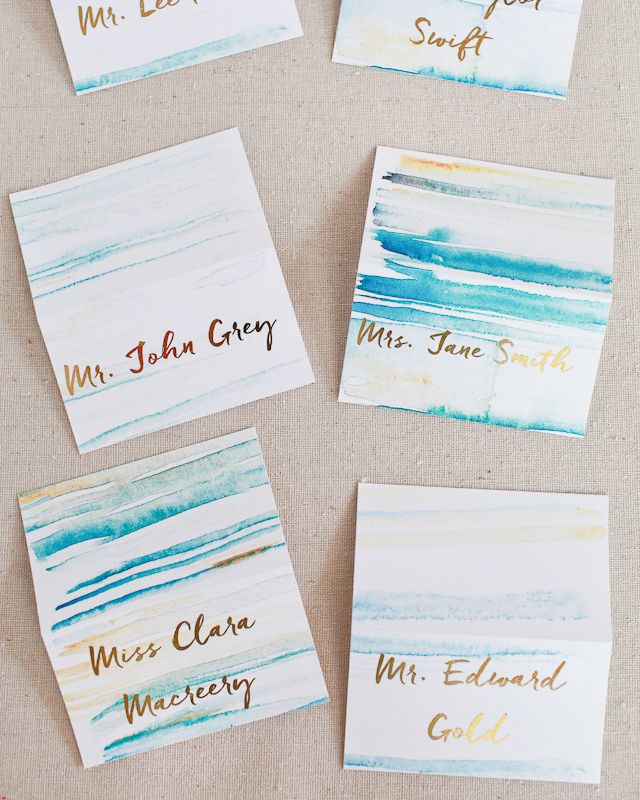 Mr. Lee
Swift
Mr. John Grey
Mrs. Jane Smith
Miss Clara
Macreery
Mr. Edward
Gold